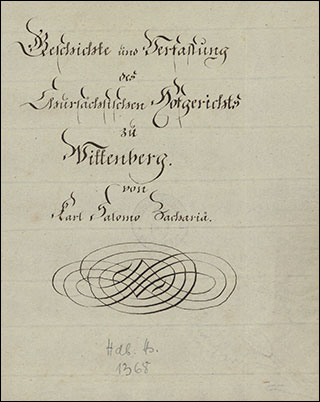 Geschichte und Verfassung
des
Chursächsischen Hofgerichts
zu
Wittenberg.
von
Karl Salomo Zachariä.
Hdb. H.
1368